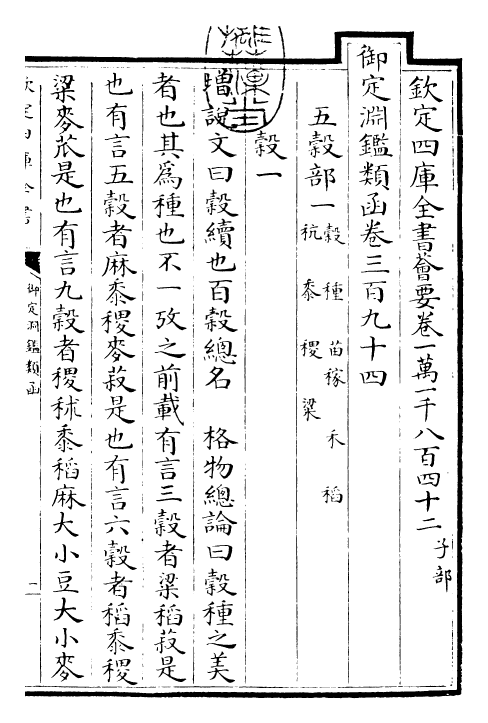 欽定四庫全書薈要卷一萬一千八百四十二 子部
御定淵鑑類函卷三百九十四
五穀部一 穀 種 苗稼 禾 稻
秔 黍 稷 粱
穀一
增說文曰穀續也百穀總名 格物總論曰穀種之美
者也其爲種也不一攷之前載有言三穀者粱稻菽是
也有言五穀者麻黍稷麥菽是也有言六穀者稻黍稷
粱麥苽是也有言九穀者稷秫黍稻麻大小豆大小麥
欽定四庫全書
御定淵鑑類函
一